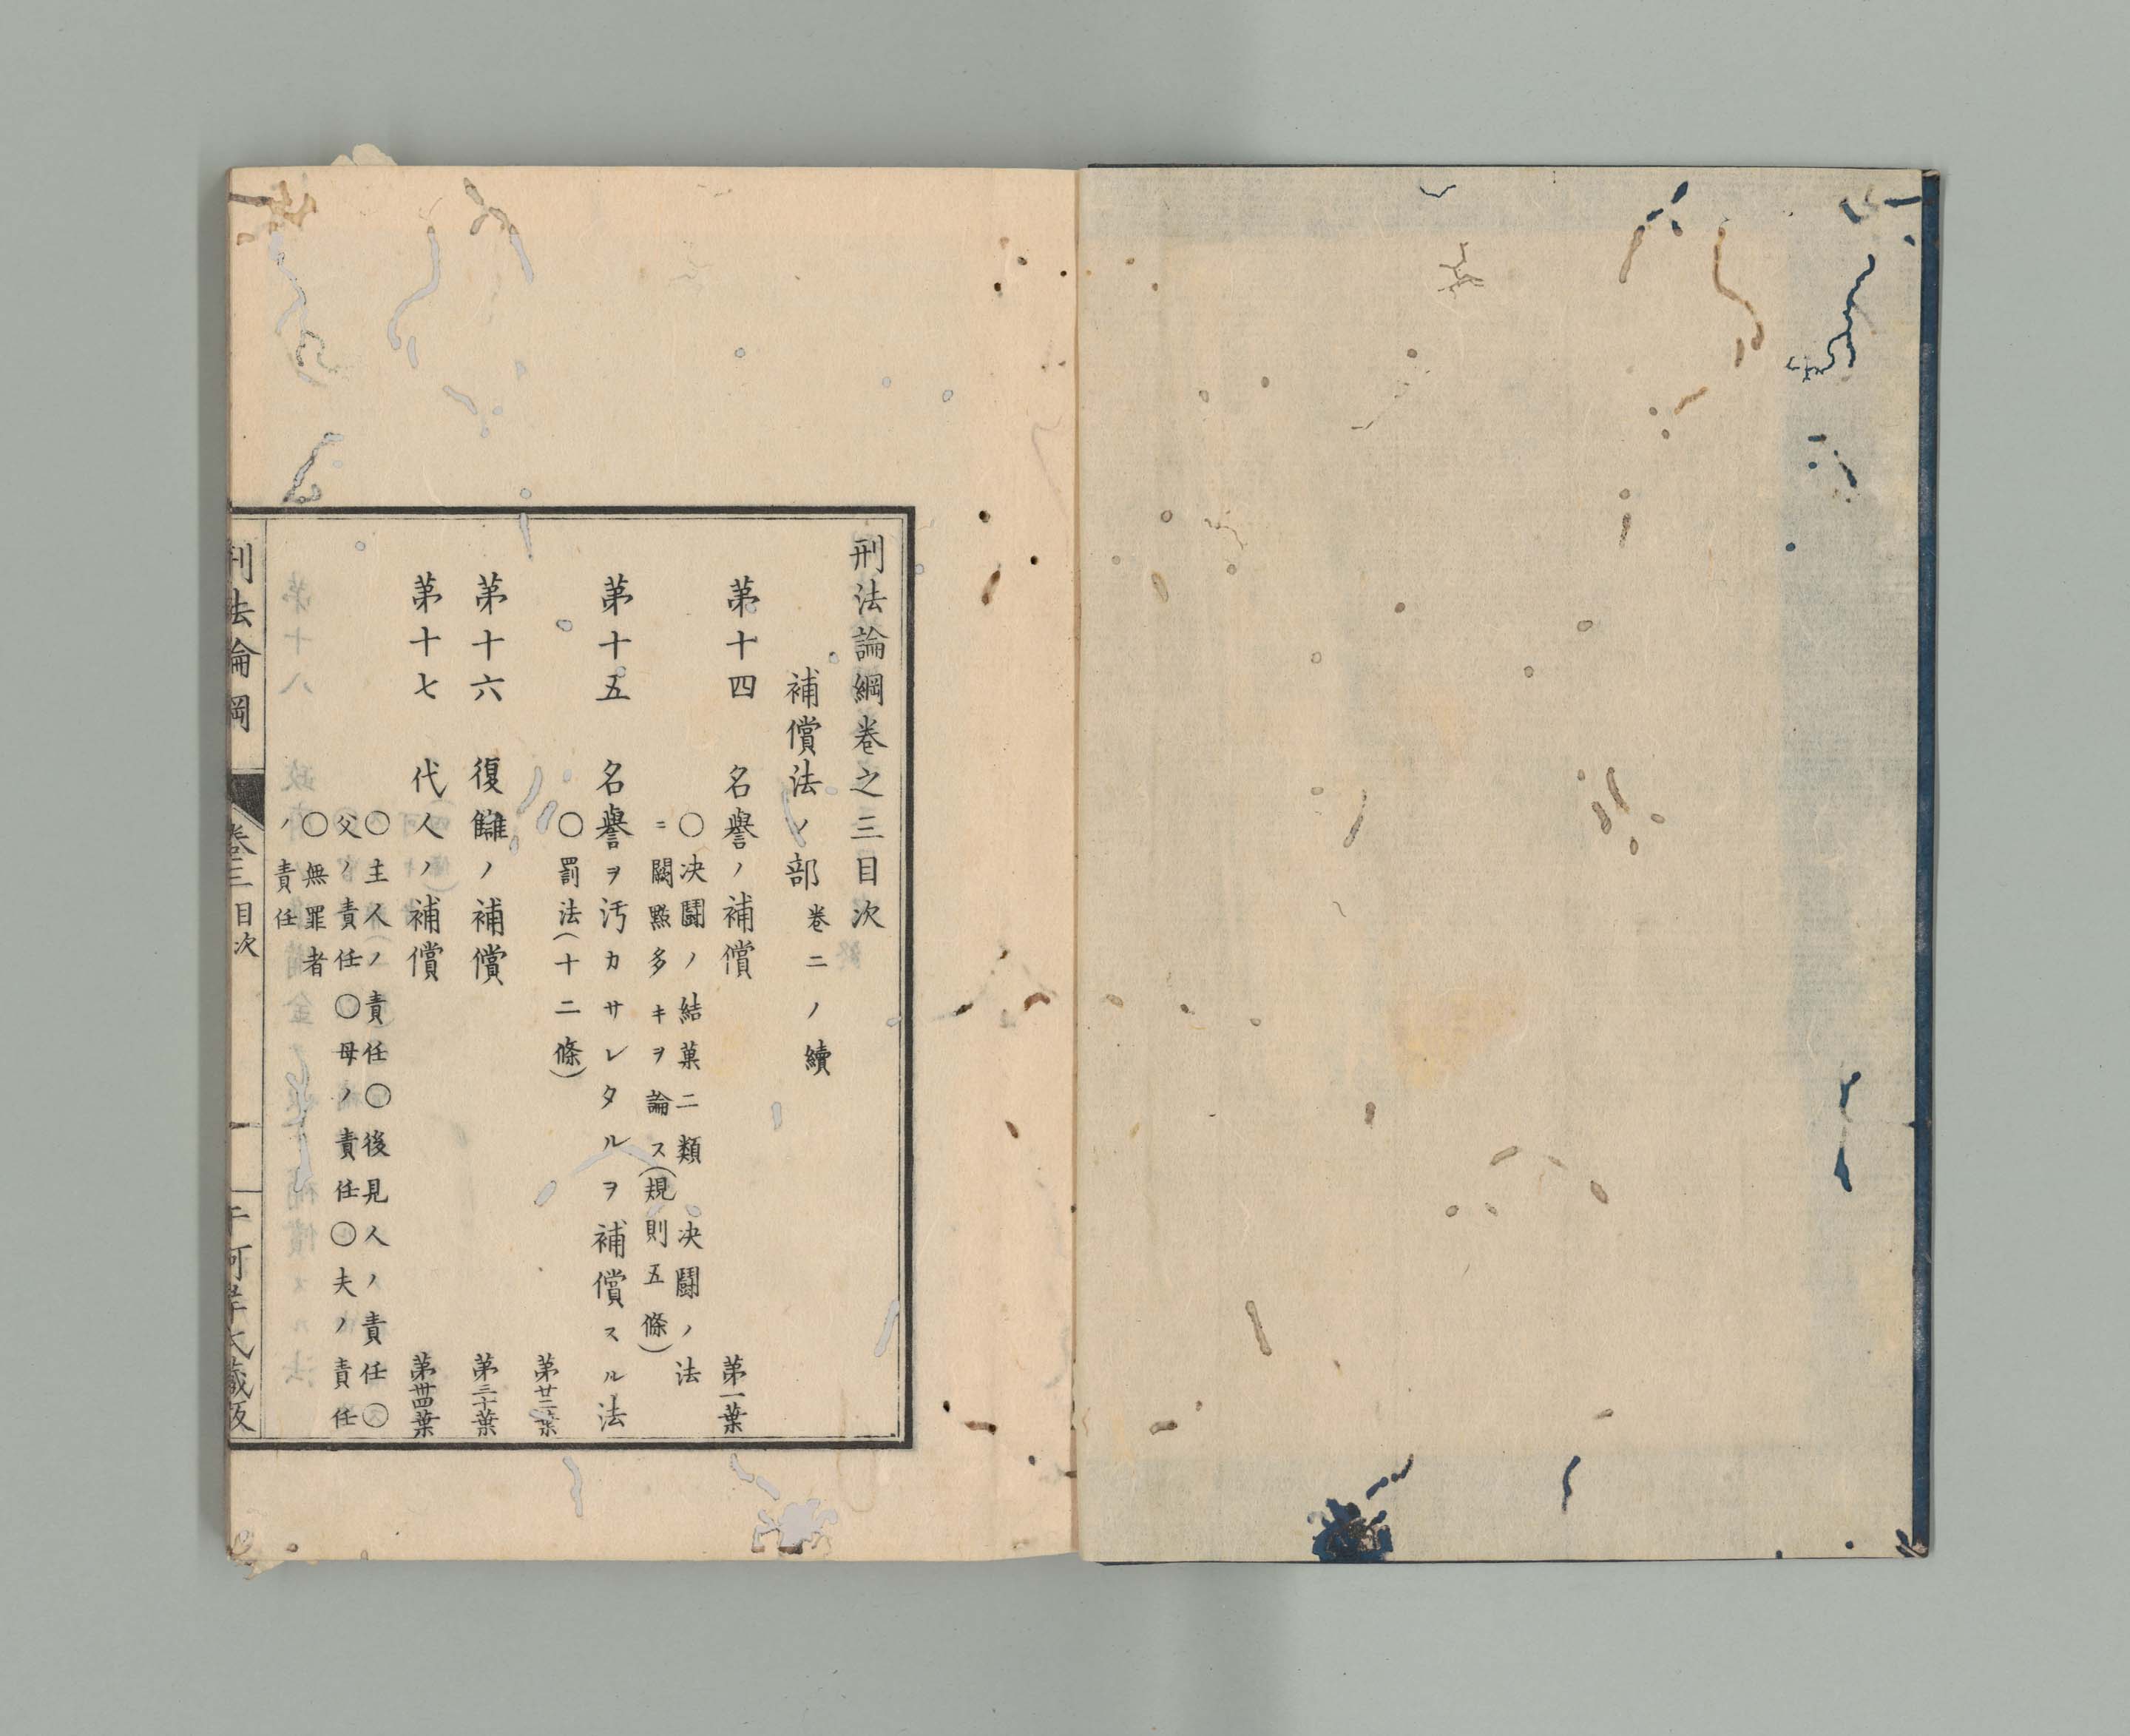 刑法論綱卷之三目次
補償法ノ部 卷二ノ續
第十四 名譽ノ補償 第一葉
○决鬪ノ結菓二類 决鬪ノ法
ニ闕點多キヲ論ス(規則五條)
第十五 名譽ヲ汚カサレタルヲ補償スル法
○罰法(十二條) 第廿二葉
第十六 復讎ノ補償 第三十葉
第十七 代人ノ補償 第卅四葉
○主人ノ責任○後見人ノ責任○
父ノ責任○母ノ責任○夫ノ責任
○無罪者
ノ責任
刑法論綱 卷三 目次 一